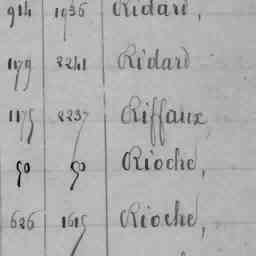 914 1936 Ridard,
1179 2241 Ridard
1175 2237 Riffaux,
50 50 Rioche,
626 1615 Rioche,